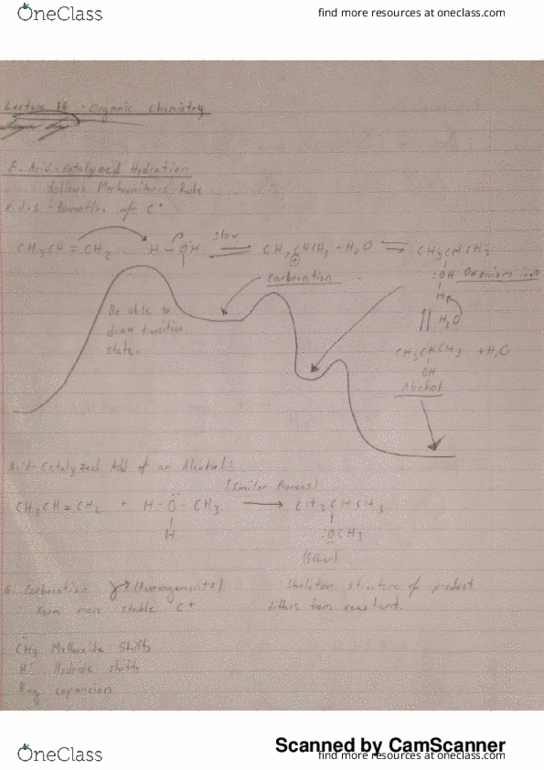 OneClass
find more resources at oneclass.com
Lecture 16 - Organic Chemistry
F. Acid-catalyzed Hydration
follows Markovnikov's Rule
r.d.s - formation of C+
CH3CH=CH2 H-OH Slow CH3CHCH3 + H2O CH3CHCH3
Carbocation
:OH Oxonium ion
H
H2O
Be able to
draw transition
state.
CH3CHCH3 + H3O
OH
Alcohol
Acid-Catalyzed Add of an Alcohol:
(Similar Process)
CH3CH=CH2 + H-O-CH3 → CH3CHCH3
H
:OCH3
(Ether)
G. Carbocation (Rearrangements) : Skeleton structure of product
Form more stable C+ differs from reactant.
CH3 Methanide Shifts
H: Hydride shifts
Ring expansion
Scanned by CamScanner
OneClass
find more resources at oneclass.com